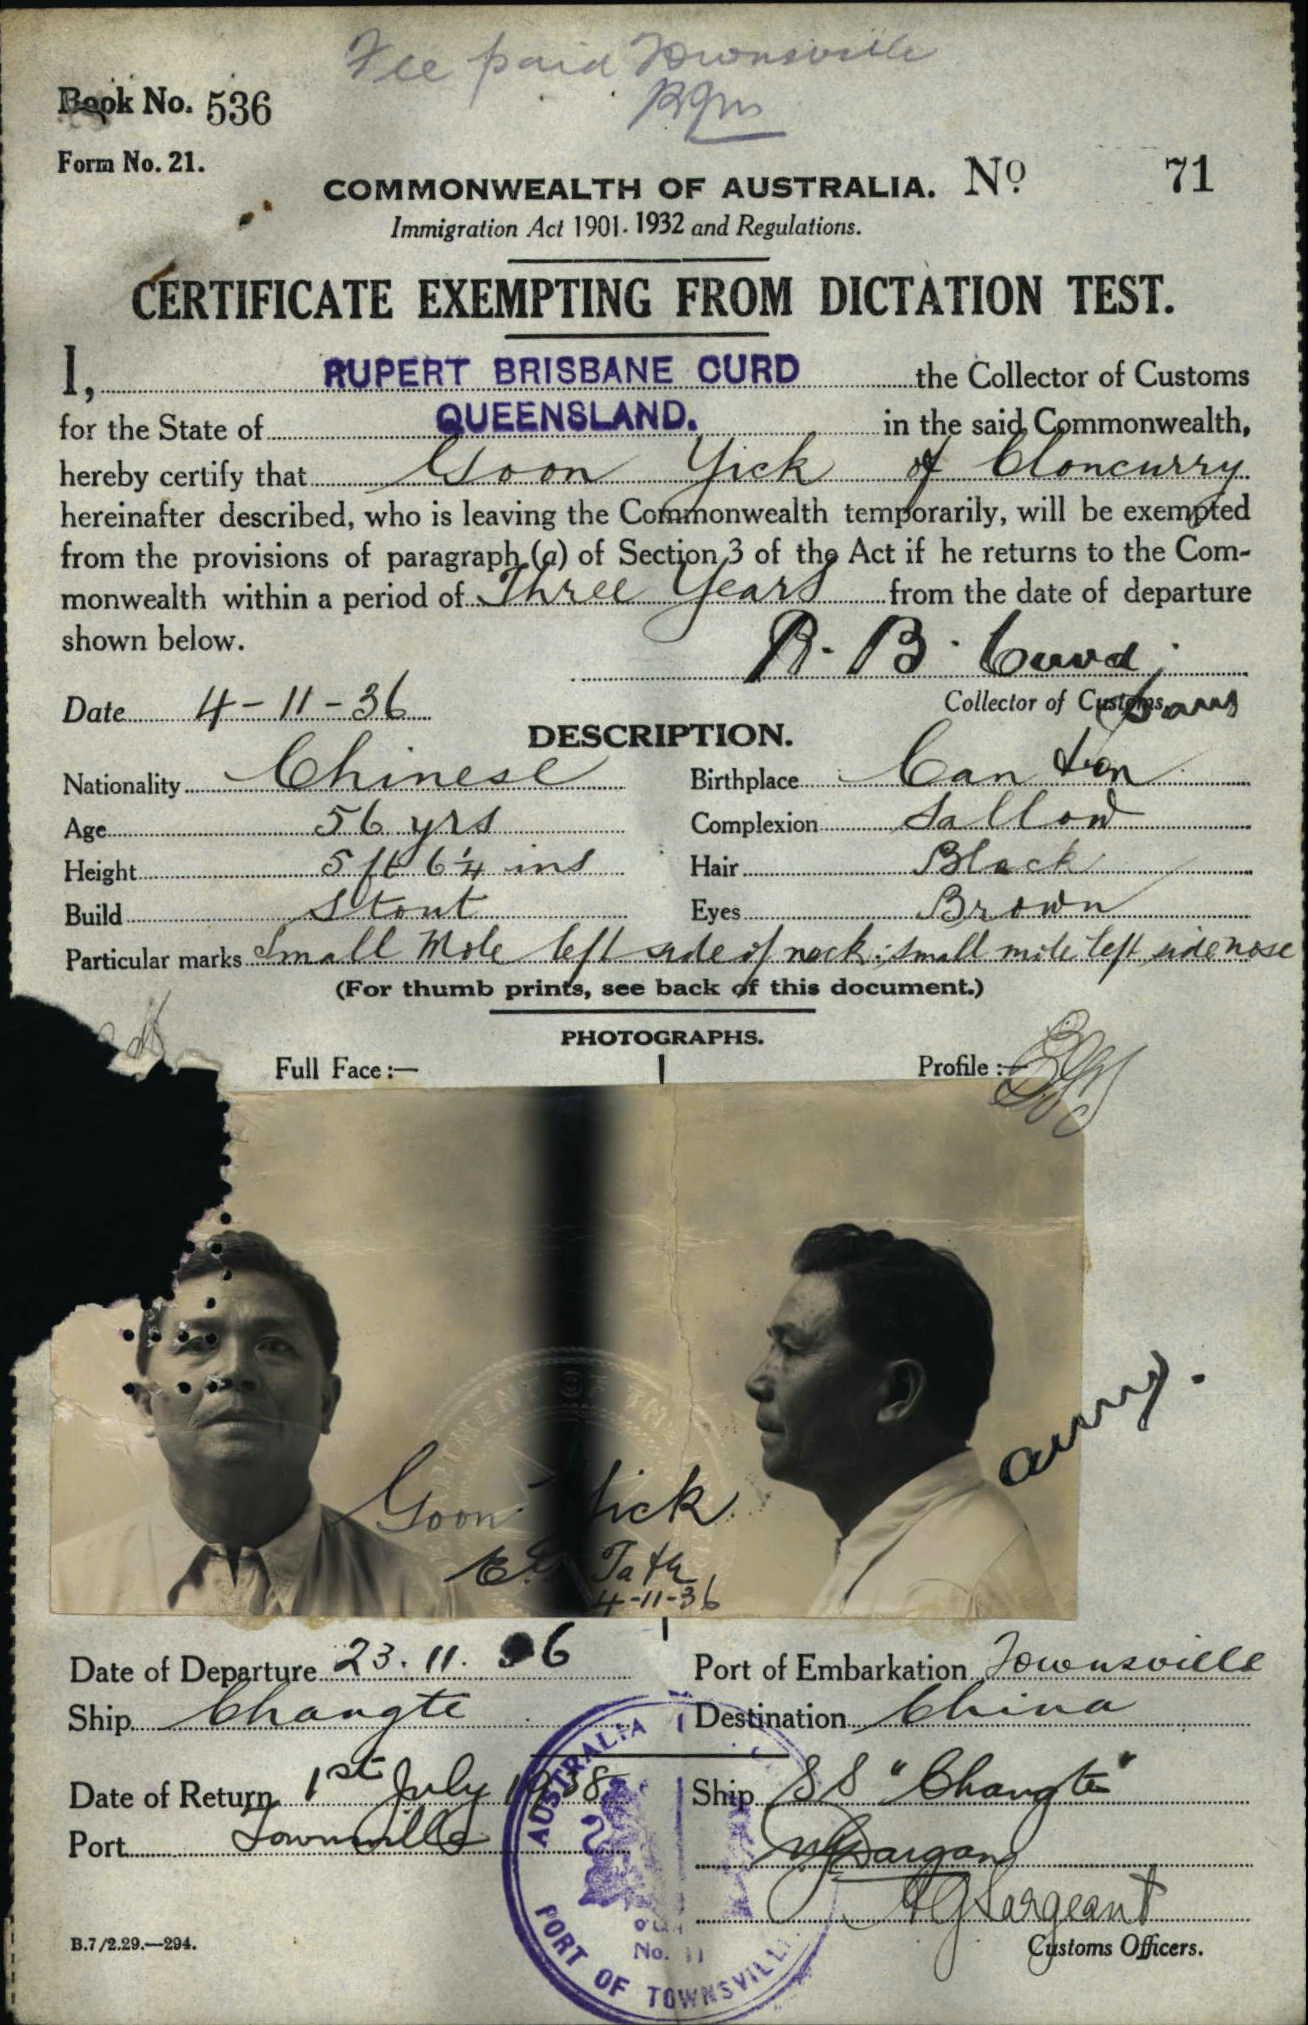 Fee paid Townsville
Book No. 536
Form No. 21.
COMMONWEALTH OF AUSTRALIA. No 71
Immigration Act 1901-1932 and Regulations.
CERTIFICATE EXEMPTING FROM DICTATION TEST.
I, RUPERT BRISBANE CURD the Collector of Customs
for the State of QUEENSLAND. in the said Commonwealth,
hereby certify that Goon Yick of Cloncurry
hereinafter described, who is leaving the Commonwealth temporarily, will be exempted
from the provisions of paragraph (a) of Section 3 of the Act if he returns to the Com-
monwealth within a period of Three Years from the date of departure
shown below.
R. B. Curd
Date 4-11-36 Collector of Customs
DESCRIPTION.
Nationality Chinese Birthplace Canton
Age 56 yrs Complexion Sallow
Height 5 ft 6¼ ins Hair Black
Build Stout Eyes Brown
Particular marks Small Mole left side of neck: small mole left side nose
(For thumb prints, see back of this document.)
PHOTOGRAPHS.
Full Face:— Profile:—
Goon Yick
4-11-36
Date of Departure 23.11.36 Port of Embarkation Townsville
Ship Changte Destination China
Date of Return 1st July 1938 Ship SS "Changte"
Port Townsville
AG Sargeant
Customs Officers.
B.7/2.29.—294.
AUSTRALIA
No. 11
PORT OF TOWNSVILLE